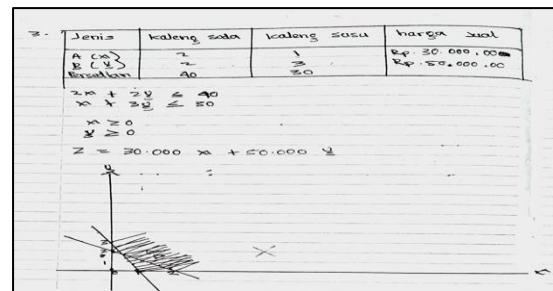 3. Jenis kaleng soda kaleng susu harga jual
A (x) 2 1 Rp. 30.000,00
B (y) 2 3 Rp. 50.000,00
Persediaan 40 30
2x + 2y ≤ 40
x + 3y ≤ 30
x ≥ 0
y ≥ 0
Z = 30.000 x + 50.000 y
y
x